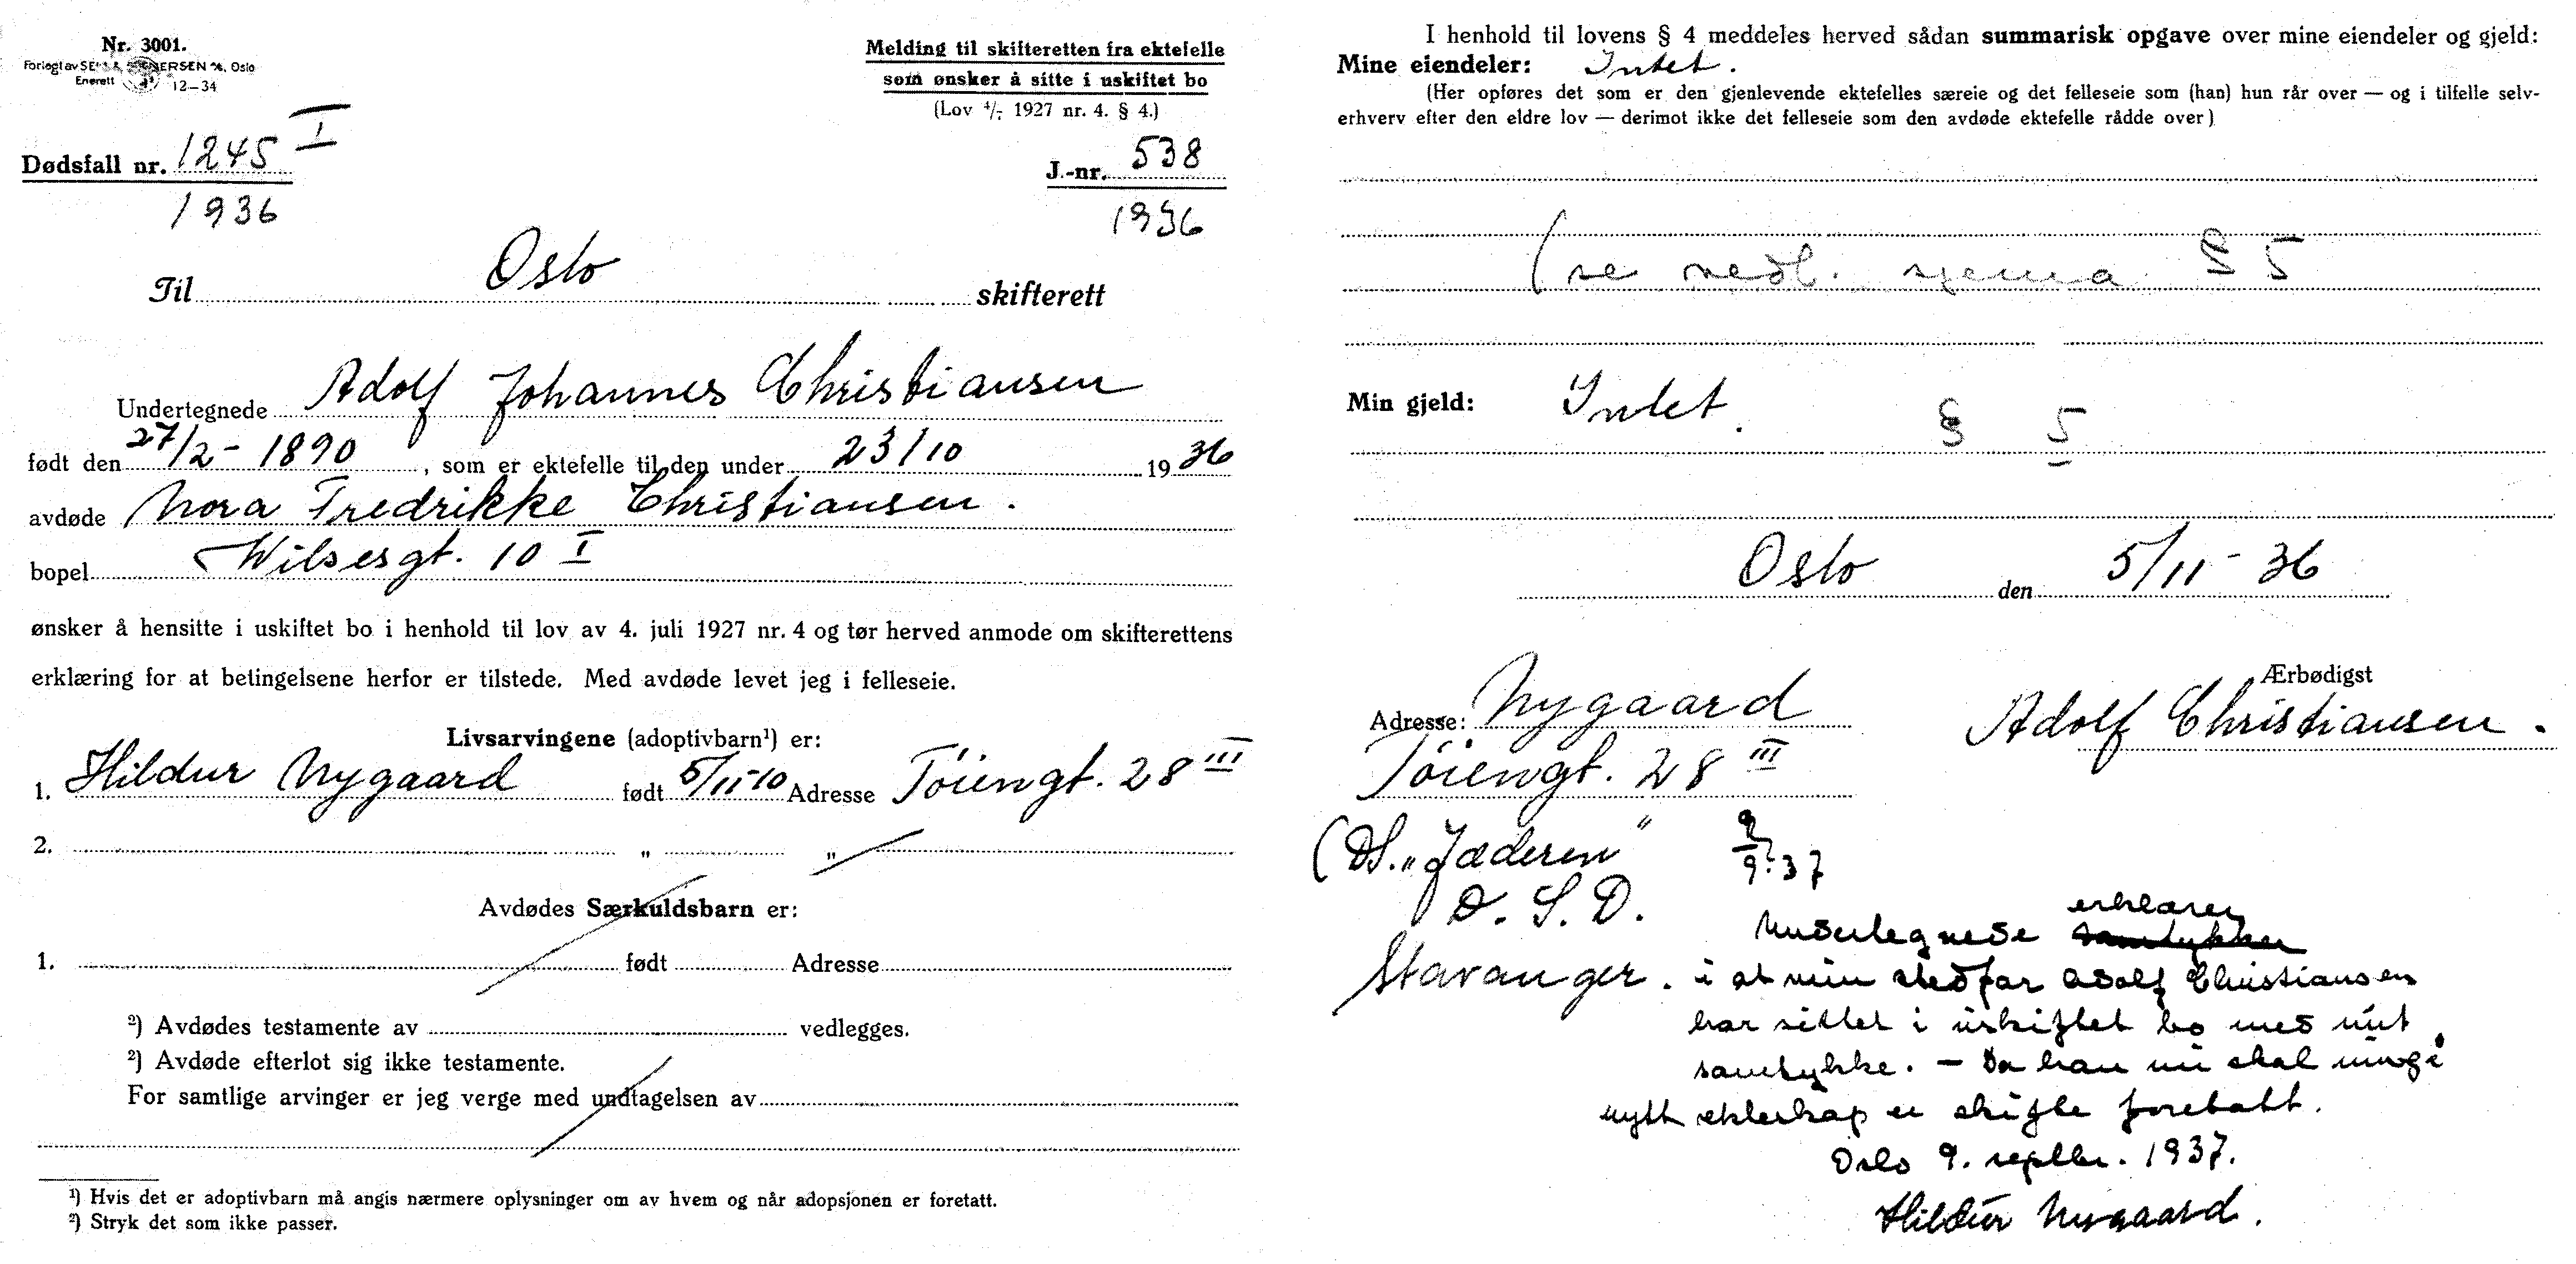 Nr. 3001.
Forlagt av SE & NERSEN %, Oslo
Enerett 12—34
Melding til skifteretten fra ektefelle
som ønsker å sitte i uskiftet bo
(Lov 4/7 1927 nr. 4. § 4.)
Dødsfall nr. 1245 I
1936
J.-nr. 538
1936
Til Oslo skifterett
Undertegnede Adolf Johannes Christiansen
født den 27/2 - 1890, som er ektefelle til den under 23/10 1936
avdøde Nora Fredrikke Christiansen.
bopel Wilsesgt. 10 I
ønsker å hensitte i uskiftet bo i henhold til lov av 4. juli 1927 nr. 4 og tør herved anmode om skifterettens
erklæring for at betingelsene herfor er tilstede. Med avdøde levet jeg i felleseie.
Livsarvingene (adoptivbarn¹) er:
1. Hildur Nygaard født 5/11-10 Adresse Töiengt. 28 III
2. „ „
Avdødes Særkuldsbarn er:
1. født Adresse
²) Avdødes testamente av vedlegges.
²) Avdøde efterlot sig ikke testamente.
For samtlige arvinger er jeg verge med undtagelsen av
¹) Hvis det er adoptivbarn må angis nærmere oplysninger om av hvem og når adopsjonen er foretatt.
²) Stryk det som ikke passer.
I henhold til lovens § 4 meddeles herved sådan summarisk opgave over mine eiendeler og gjeld:
Mine eiendeler: Intet.
(Her opføres det som er den gjenlevende ektefelles særeie og det felleseie som (han) hun rår over — og i tilfelle selv-
erhverv efter den eldre lov — derimot ikke det felleseie som den avdøde ektefelle rådde over)
(se vedl. sjema § 5
Min gjeld: Intet. § 5
Oslo den 5/11 - 36
Ærbødigst
Adresse: Nygaard Adolf Christiansen.
Töiengt. 28 III
(D/S. „Jæderen"
D. S. D.
Stavanger.
9/9.37
erklærer
Undertegnede samtykker
i at min stedfar Adolf Christiansen
har sittet i uskiftet bo med mit
samtykke. — Da han nu skal inngå
nytt ekteskap er skifte foretatt.
Oslo 9. septbr. 1937.
Hildur Nygaard.